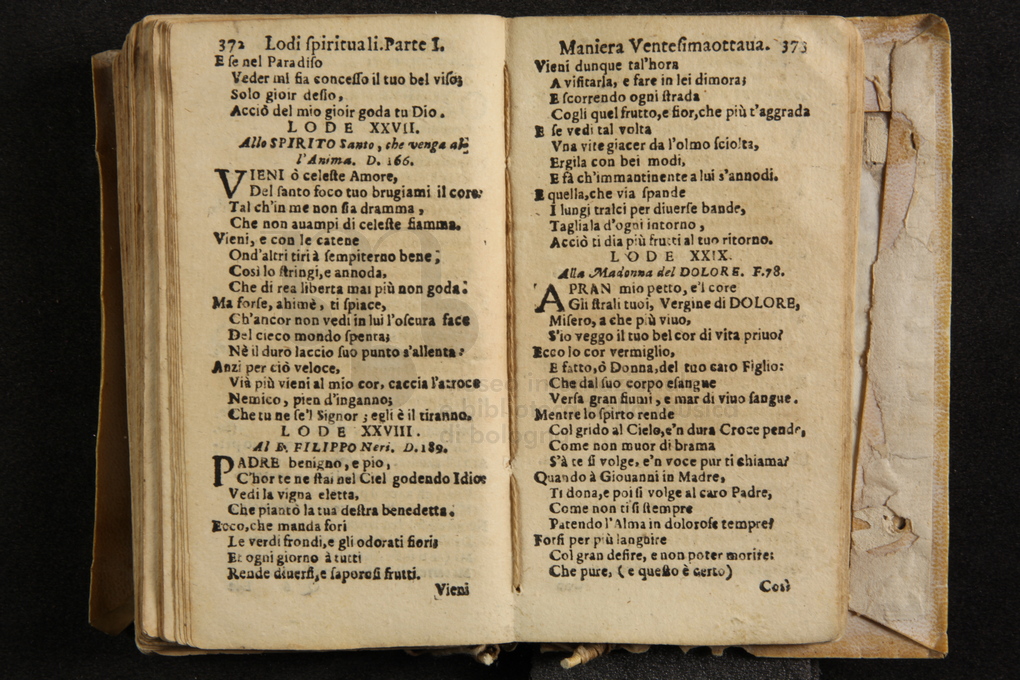 372 Lodi spirituali. Parte I.
E se nel Paradiso
Veder mi fia concesso il tuo bel viso;
Solo gioir desio,
Acciò del mio gioir goda tu Dio.
LODE XXVII.
Allo SPIRITO Santo, che venga al-
l'Anima. D. 166.
VIENI ò celeste Amore,
Del santo foco tuo brugiami il core:
Tal ch'in me non sia dramma,
Che non auampi di celeste fiamma.
Vieni, e con le catene
Ond'altri tiri à sempiterno bene;
Così lo stringi, e annoda,
Che di rea liberta mai più non goda.
Ma forse, ahimè, ti spiace,
Ch'ancor non vedi in lui l'oscura face
Del cieco mondo spenta;
Nè il duro laccio suo punto s'allenta:
Anzi per ciò veloce,
Vià più vieni al mio cor, caccia l'atroce
Nemico, pien d'inganno;
Che tu ne se'l Signor; egli è il tiranno.
LODE XXVIII.
Al B. FILIPPO Neri. D. 189.
PADRE benigno, e pio,
C'hor te ne stai nel Ciel godendo Idio:
Vedi la vigna eletta,
Che piantò la tua destra benedetta.
Ecco, che manda fori
Le verdi frondi, e gli odorati fiori;
Et ogni giorno à tutti
Rende diuersi, e saporosi frutti.
Vieni
Maniera Ventesimaottaua. 373
Vieni dunque tal'hora
A visitarla, e fare in lei dimora;
E scorrendo ogni strada
Cogli quel frutto, e fior, che più t'aggrada
E se vedi tal volta
Vna vite giacer da l'olmo sciolta,
Ergila con bei modi,
E fà ch'immantinente a lui s'annodi.
E quella, che via spande
I lungi tralci per diuerse bande,
Tagliala d'ogni intorno,
Acciò ti dia più frutti al tuo ritorno.
LODE XXIX.
Alla Madonna del DOLORE. F. 78.
APRAN mio petto, e'l core
Gli strali tuoi, Vergine di DOLORE,
Misero, a che più viuo,
S'io veggo il tuo bel cor di vita priuo?
Ecco lo cor vermiglio,
E fatto, ò Donna, del tuo caro Figlio:
Che dal suo corpo esangue
Versa gran fiumi, e mar di viuo sangue.
Mentre lo spirto rende
Col grido al Cielo, e'n dura Croce pende,
Come non muor di brama
S'à te si volge, e'n voce pur ti chiama?
Quando à Giouanni in Madre,
Ti dona, e poi si volge al caro Padre,
Come non ti si stempre
Patendo l'Alma in dolorose tempre?
Forsi per più languire
Col gran desire, e non poter morire:
Che pure, (e questo è certo)
Così